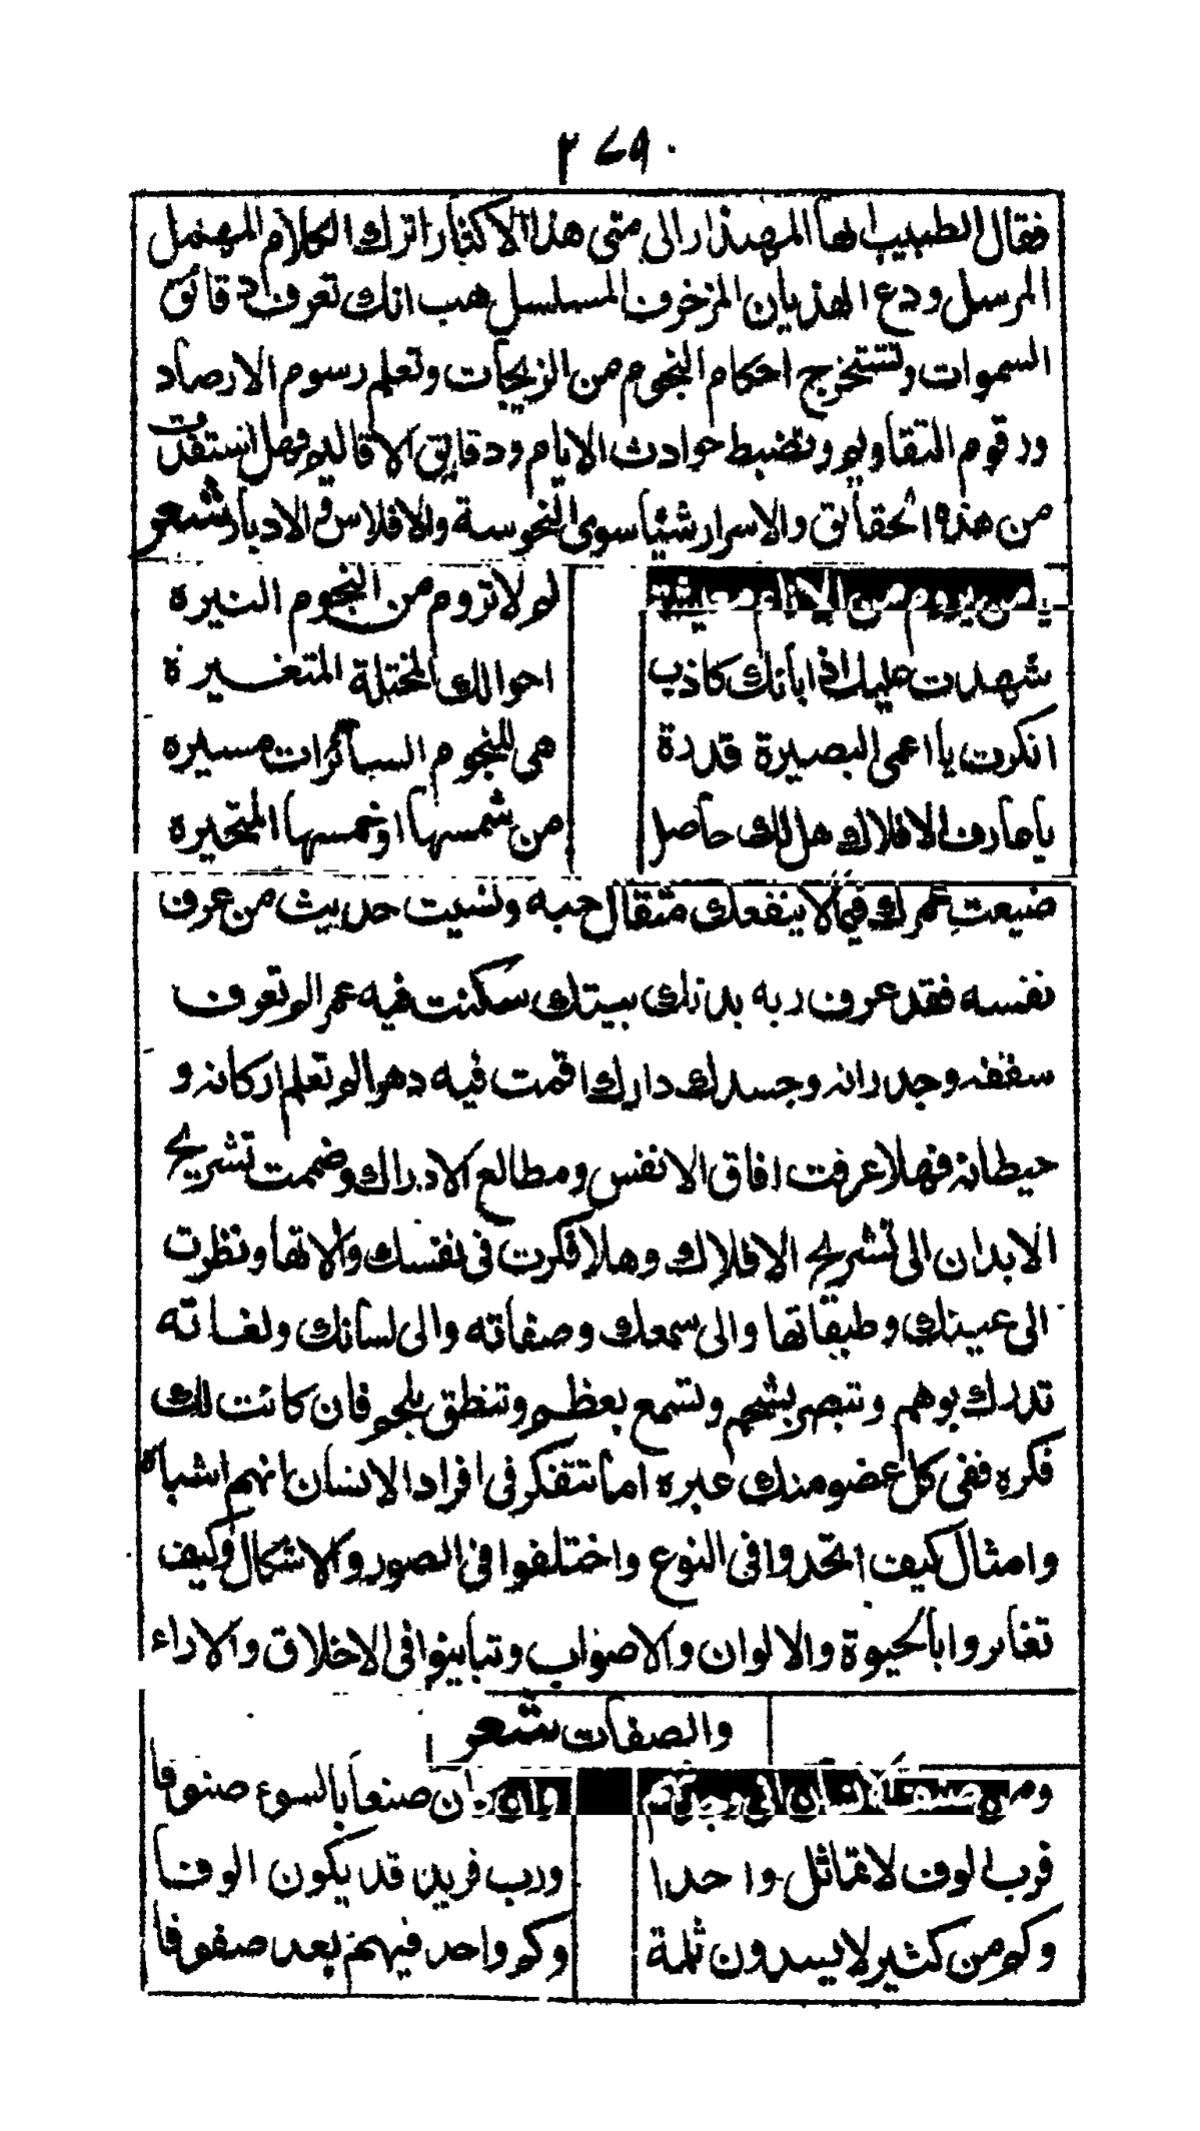 ٢٤٩
فقال الطبيب ايها المهذار الى متى هذا الاكثار اترك الكلام المهمل
المرسل ودع الهذيان المزخرف المسلسل هب انك تعرف دقائق
السموات وتستخرج احكام النجوم من الزيجات وتعلم رسوم الارصاد
ورقوم التقاويم وتضبط حوادث الايام ودقايق الاقاليم فهل استفدت
من هذه الحقائق والاسرار شيئا سوى النحوسة والافلاس والادبار شعر
يا من يروم من الانام معيشة لم لا تروم من النجوم النيرة
شهدت عليك اذا بانك كاذب احوالك المختلة المتغيرة
انكرت يا اعمى البصيرة قدرة هى للنجوم السائرات مسيره
يا عارف الافلاك هل لك حاصل من شمسها او خمسها المتحيرة
ضيعت عمرك فيما لا ينفعك مثقال حبه ونسيت حديث من عرف
نفسه فقد عرف ربه بدنك بيتك سكنت فيه عمرا لم تعرف
سقفه وجدرانه وجسدك دارك اقمت فيه دهرا لم تعلم اركانه و
حيطانه فهلا عرفت افاق الانفس ومطالع الادراك وضممت تشريح
الابدان الى تشريح الافلاك وهلا فكرت فى نفسك والاتها ونظرت
الى عينك وطبقاتها والى سمعك وصفاته والى لسانك ولغاته
تدرك بوهم وتبصر بشحم وتسمع بعظم وتنطق بلحم فان كانت لك
فكره ففى كل عضو منك عبره اما تتفكر فى افراد الانسان انهم اشباه
وامثال كيف اتحدوا فى النوع واختلفوا فى الصور والاشكال وكيف
تغايروا بالحيوة والالوان والاصواب وتباينوا فى الاخلاق والاراء
والصفات شعر
صنعا بالسوع صنوفا
فرب الوف لا تماثل واحدا ورب فريد قد يكون الوفا
وكم من كثير لا يسدون ثلمة وكم واحد فيهم يعد صفوفا